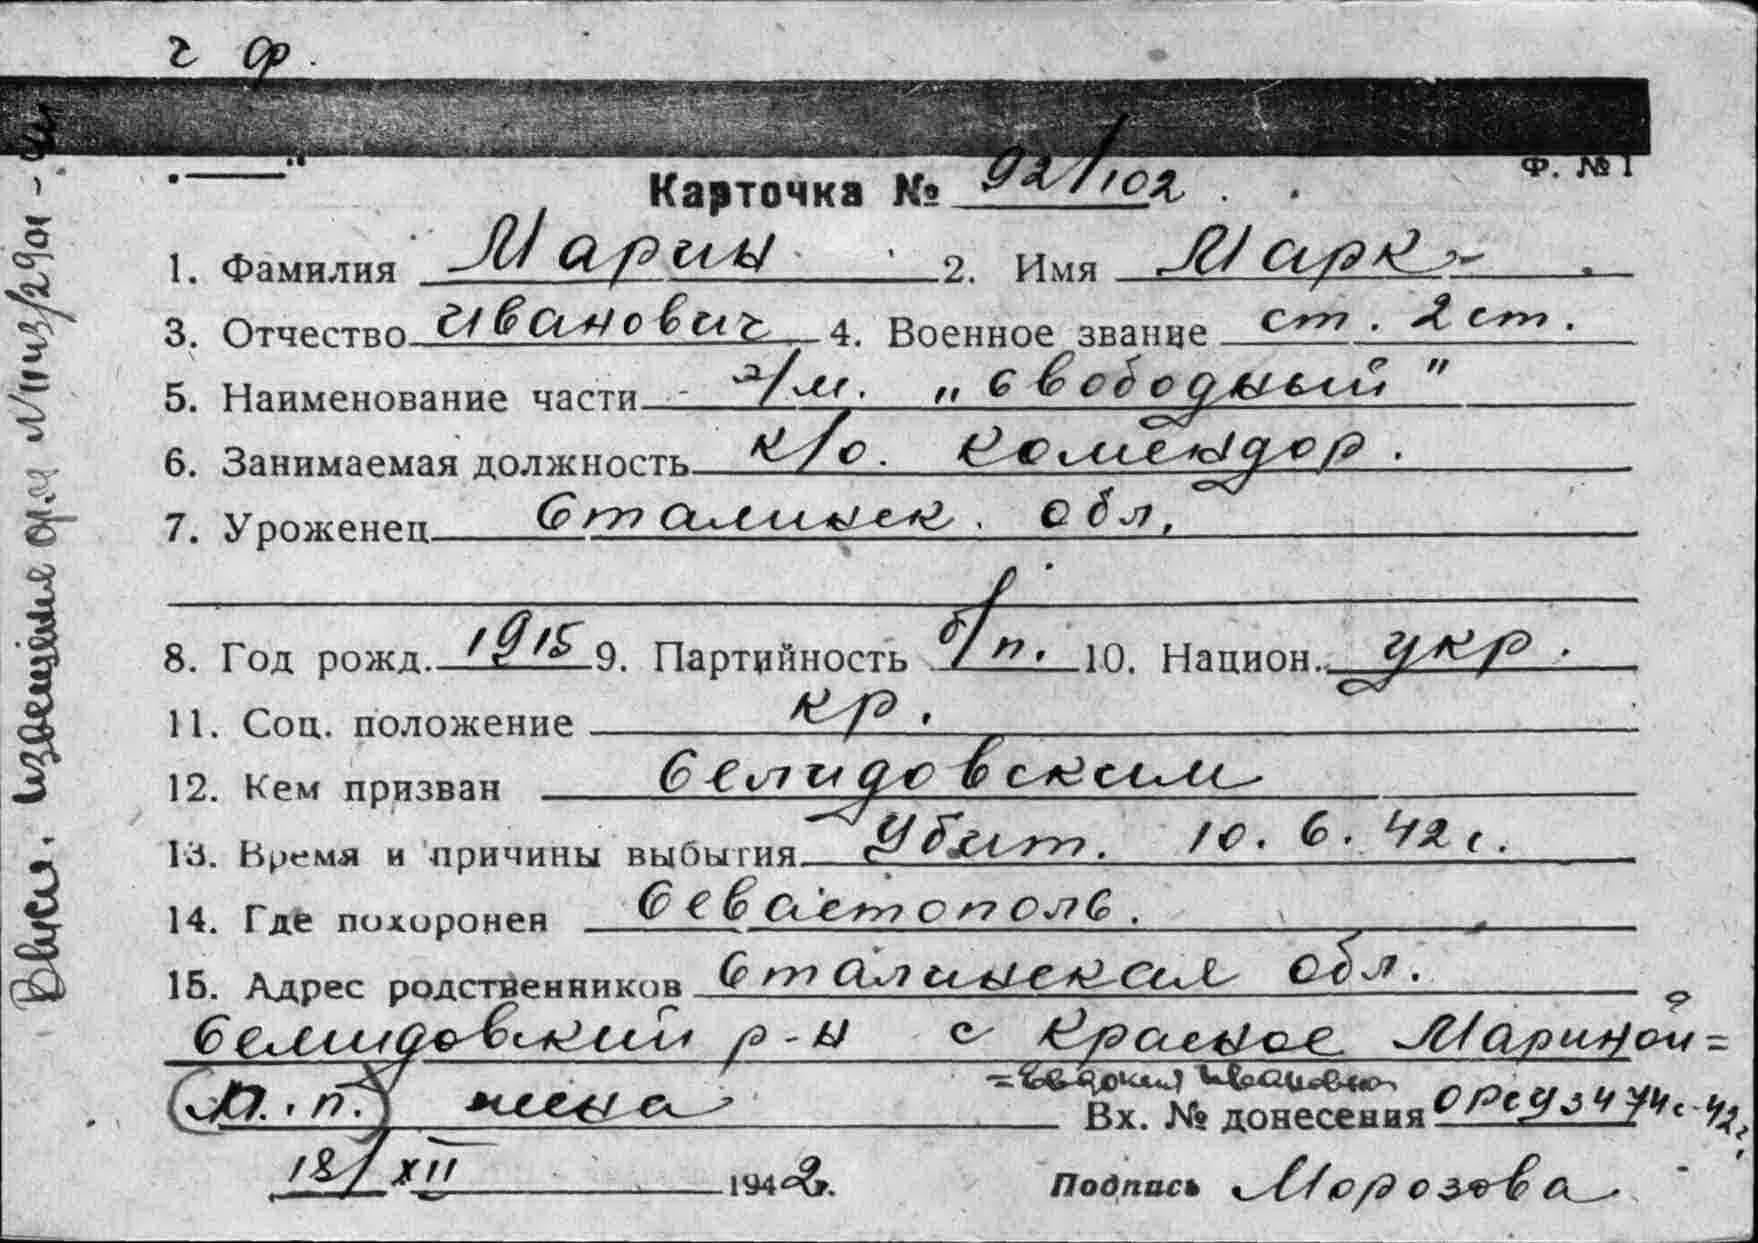 ч ф.
Ф. № 1
Карточка № 92/102
1. Фамилия Марин 2. Имя Марк
3. Отчество Иванович 4. Военное звание ст. 2 ст.
5. Наименование части э/м. „Свободный"
6. Занимаемая должность к/о. комендор.
7. Уроженец Сталинск. обл.
8. Год рожд. 1915 9. Партийность б/п. 10. Национ. укр.
11. Соц. положение кр.
12. Кем призван Селидовским
13. Время и причины выбытия Убит. 10. 6. 42 г.
14. Где похоронен Севастополь.
15. Адрес родственников Сталинская обл.
Селидовский р-н с Красное Мариной=
=Евдокия Ивановна
(М. п.) жена Вх. № донесения
18/XII 1942г. Подпись Морозова
извещение